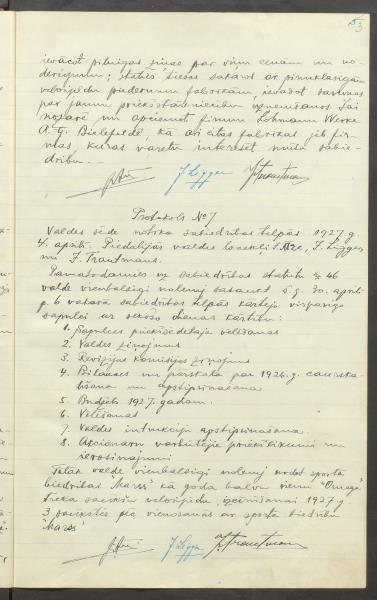 53
ievācot pilnīgas ziņas par viņu cenām un no-
derīgumu; stāties tiešos sakaros ar pirmklasīgām
velosipēdu piederumu fabrikām, ievadot sarunas
par jaunu priekšstāvniecību uzņemšanos
un apciemot firmu Lohmann Werke
A.G. Bielefeldē, kā arī citas fabrikas jeb fir-
mas, kuras varētu interesēt mūsu sabie-
drību. —
J. Ligger J. Trautmann
Protokols No 7
Valdes sēde notika sabiedrības telpās 1927 g.
4. aprilī. Piedalījās valdes locekļi, J. Ligger
un J. Trautmans.
Pamatodamies uz sabiedrības statutu § 46
valde vienbalsīgi nolemj sasaukt š.g. 30. aprilī
p. 6 vakarā sabiedrības telpās kārtējo vispārīgo
sapulci ar sekošo dienas kārtību:
1. Sapulces priekšsēdētāja vēlēšanas
2. Valdes ziņojums
3. Revīzijas komisijas ziņojums
4. Bilances un pārskata par 1926. g. caurska-
tīšana un apstiprināšana
5. Budžets 1927. gadam.
6. Vēlēšanas
7. Valdes instrukcijas apstiprināšana.
8. Akcionāru varbūtējie priekšlikumi un
ierosinājumi
Tālāk valde vienbalsīgi nolemj dot sporta
biedrībai "Marss" kā goda balvu vienu "Omega"
treka sacīkšu velosipēdu, izcīnīšanai 1927 g
3 sacīkstēs pēc vienošanās ar sporta biedrību
"Marss"
J. Ligger J. Trautmann